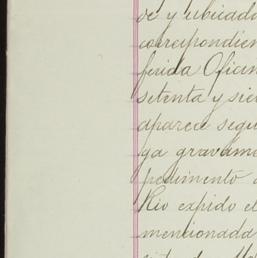 de y ubicado
correspondien
ferida Oficin
setenta y sie
aparece segu
ga gravame
pedimento
Rio expido el
mencionada